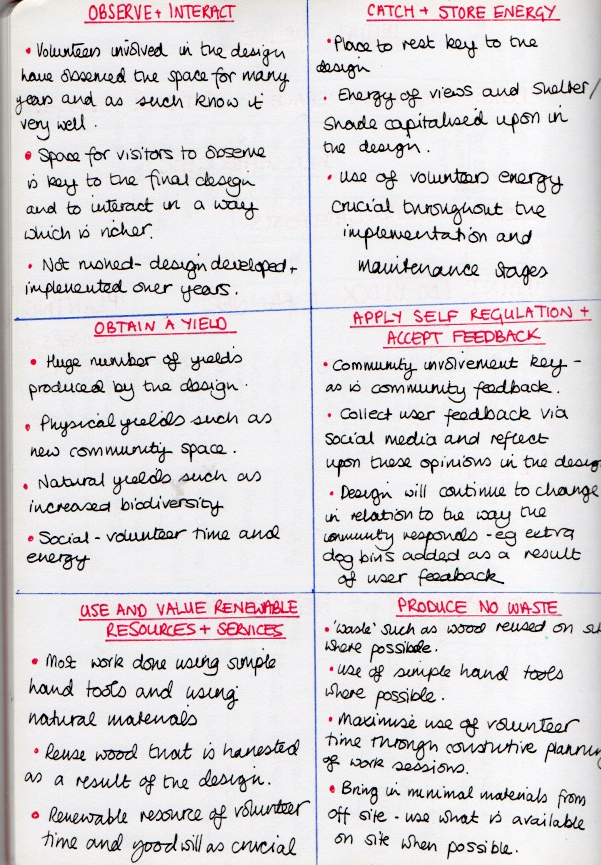 OBSERVE + INTERACT
• Volunteers involved in the design
have observed the space for many
years and as such know it
very well.
• Space for visitors to observe
is key to the final design
and to interact in a way
which is richer.
• Not rushed - design developed +
implemented over years.
CATCH + STORE ENERGY
• Place to rest key to the
design
• Energy of views and shelter/
shade capitalised upon in
the design.
• use of volunteers energy
crucial throughout the
implementation and
maintenance stages
OBTAIN A YIELD
• Huge number of yields
produced by the design.
• Physical yields such as
new community space.
• Natural yields such as
increased biodiversity
• Social - volunteer time and
energy
APPLY SELF REGULATION +
ACCEPT FEEDBACK
• Community involvement key -
as is community feedback.
• Collect user feedback via
social media and reflect
upon these opinions in the desig
• Design will continue to change
in relation to the way the
community responds - eg extra
dog bins added as a result
of user feedback
USE AND VALUE RENEWABLE
RESOURCES + SERVICES
• Most work done using simple
hand tools and using
natural materials
• Reuse wood that is harvested
as a result of the design.
• Renewable resource of volunteer
time and goodwill as crucial
PRODUCE NO WASTE
• 'Waste' such as wood reused on
where possible.
• use of simple hand tools
where possible.
• Maximise use of volunteer
time through constructive planning
of work sessions.
• Bring in minimal materials from
off site - use what is available
on site when possible.